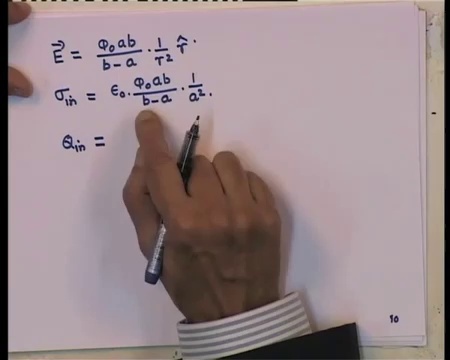 E⃗ = φ₀ab/(b−a) · 1/r² r̂ .
σᵢₙ = ε₀ · φ₀ab/(b−a) · 1/a² .
Qᵢₙ =
10